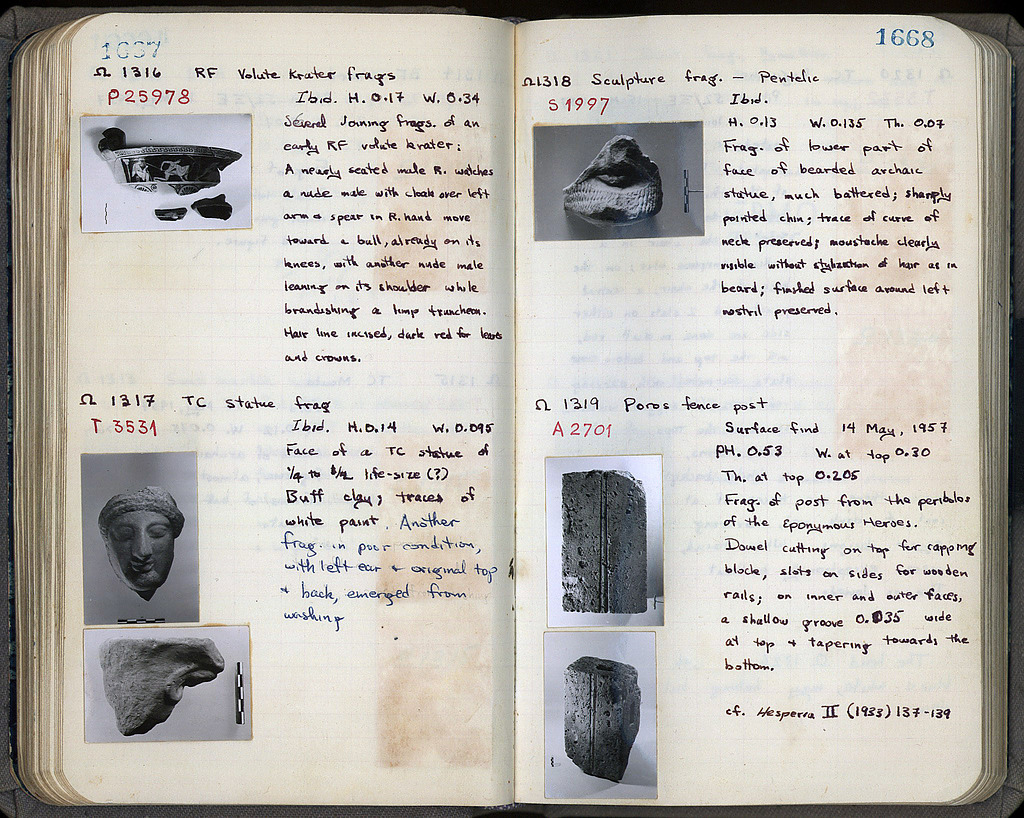 1667
Ω 1316 RF Volute Krater frags
P 25978
Ibid. H. 0.17 W. 0.34
Several joining frags. of an
early RF volute krater:
A newly seated male R. watches
a nude male with cloak over left
arm & spear in R. hand move
toward a bull, already on its
knees, with another nude male
leaning on its shoulder while
brandishing a limp truncheon.
Hair line incised, dark red for leaves
and crowns.
Ω 1317 TC statue frag
T 3531
Ibid. H. 0.14 W. 0.095
Face of a TC statue of
1/4 to 1/2 life-size (?)
Buff clay; traces of
white paint. Another
frag. in poor condition,
with left ear & original top
& back, emerged from
washing
1668
Ω1318 Sculpture frag. — Pentelic
S 1997
Ibid.
H. 0.13 W. 0.135 Th. 0.07
Frag. of lower part of
face of bearded archaic
statue, much battered; sharply
pointed chin; trace of curve of
neck preserved; moustache clearly
visible without stylization of hair as in
beard; finished surface around left
nostril preserved.
Ω 1319 Poros fence post
A 2701
Surface find 14 May, 1957
PH. 0.53 W. at top 0.30
Th. at top 0.205
Frag. of post from the peribolos
of the Eponymous Heroes.
Dowel cutting on top for capping
block, slots on sides for wooden
rails; on inner and outer faces,
a shallow groove 0.035 wide
at top & tapering towards the
bottom.
cf. Hesperia II (1933) 137-139